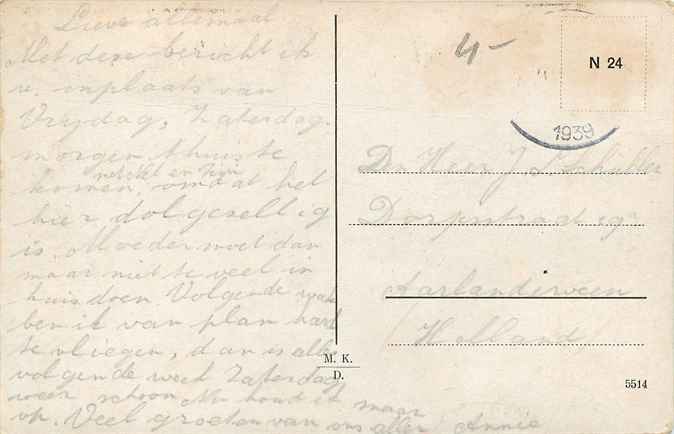 Lieve allemaal
Met deze bericht ik
u. inplaats van
Vrijdag, Zaterdag.
morgen thuis te
komen, omdat het
hier dol gesellig
is. Moeder moet dan
maar niet te veel in
huis doen. Volgende
ben ik van plan hard
te vliegen, dan is alles
volgende week Zaterdag
weer schoon. Nu houd ik maar
op. Veel groeten van ons allen Annie
4-
N 24
1939
De Heer J
Dorpsstraat
Aarlanderveen
(Holland)
M. K.
D.
5514